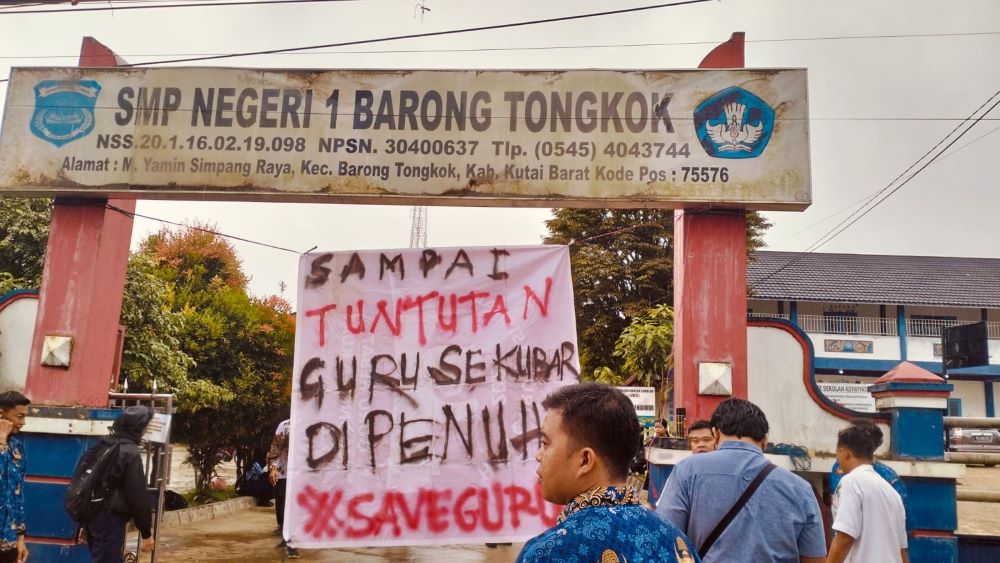 SMP NEGERI 1 BARONG TONGKOK
NSS.20.1.16.02.19.098 NPSN. 30400637 Tlp. (0545) 4043744
Alamat : M. Yamin Simpang Raya, Kec. Barong Tongkok, Kab. Kutai Barat Kode Pos : 75576
SAMPAI
TUNTUTAN
GURU SE KUBAR
DI PENUHI
SAVEGURU
SEKOLAH ADIWIYATA